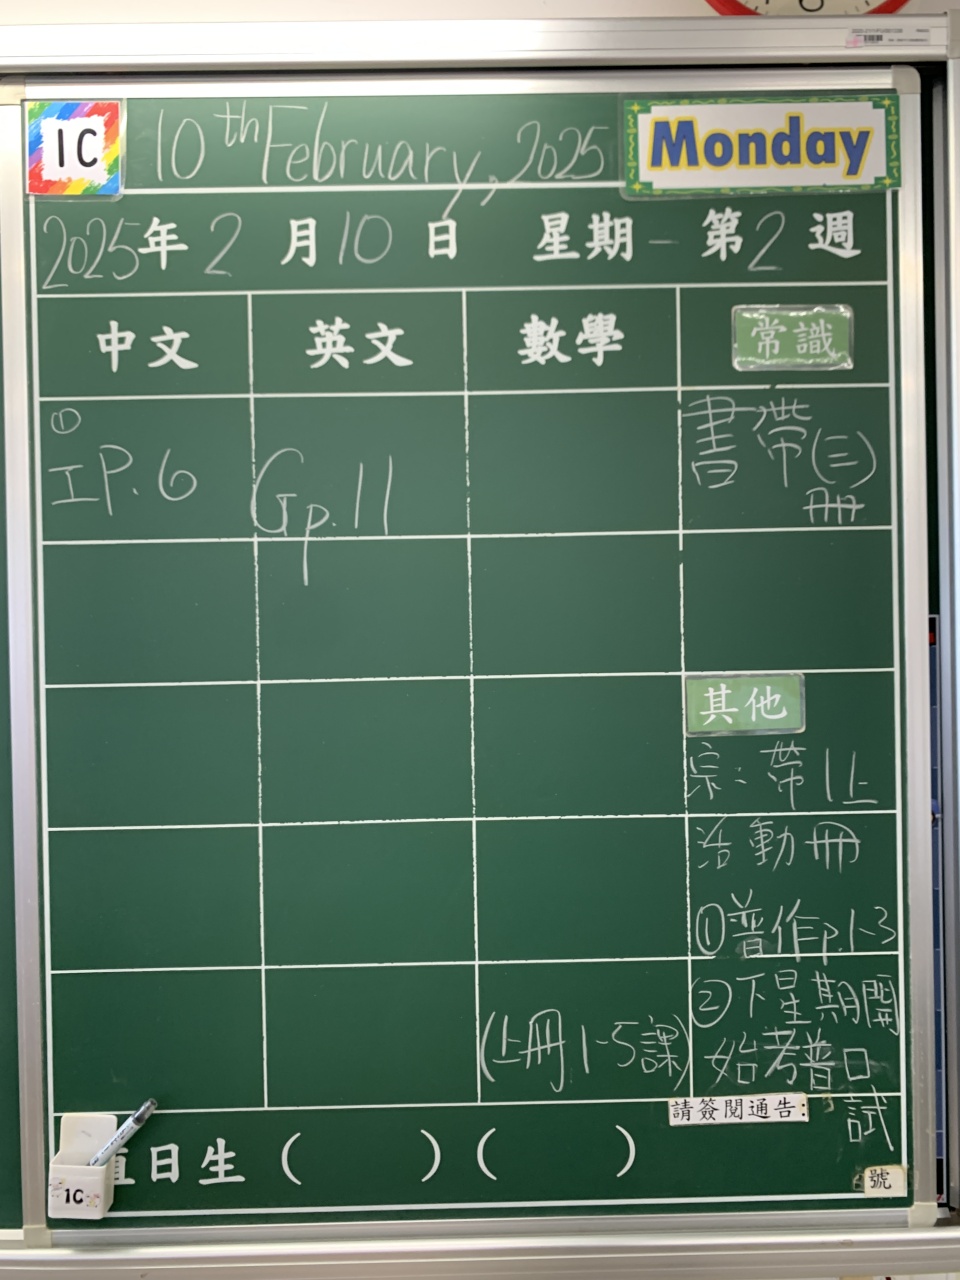 1C
10th February, 2025
Monday
2025年 2 月 10 日 星期一 第 2 週
中文 英文 數學 常識
①
工P.6
Gp.11
書帶(三)
冊
其他
宗:帶1上
活動冊
①普作p.1-3
②下星期開
始考普口
試
(上冊1-5課)
請簽閱通告:
直日生 ( ) ( )
號
1C